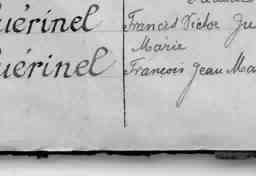 uérinel Francis Victor Ju
Marie
uérinel François Jean Ma